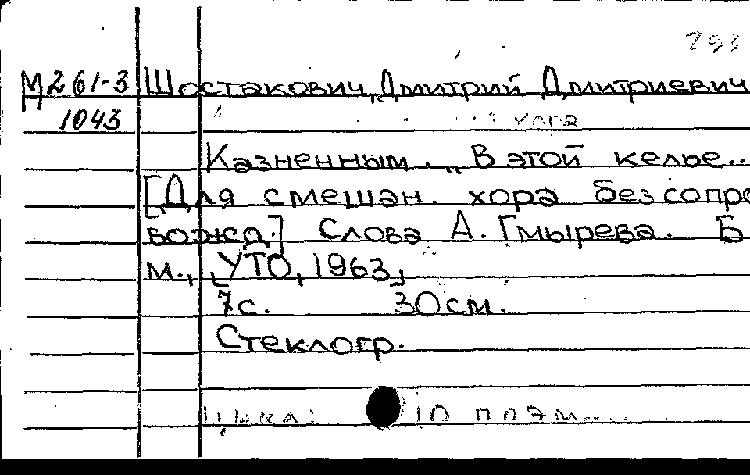 793
М261-3 Шостакович, Дмитрий Дмитриевич
П 1043
хора
Казненным. „В этой келье..
[Для смешан. хора без сопро
вожд.] Слова А. Гмырева. Б
м., [УТО, 1963]
7с. 30см.
Стеклогр.
Цикл: 10 поэм....